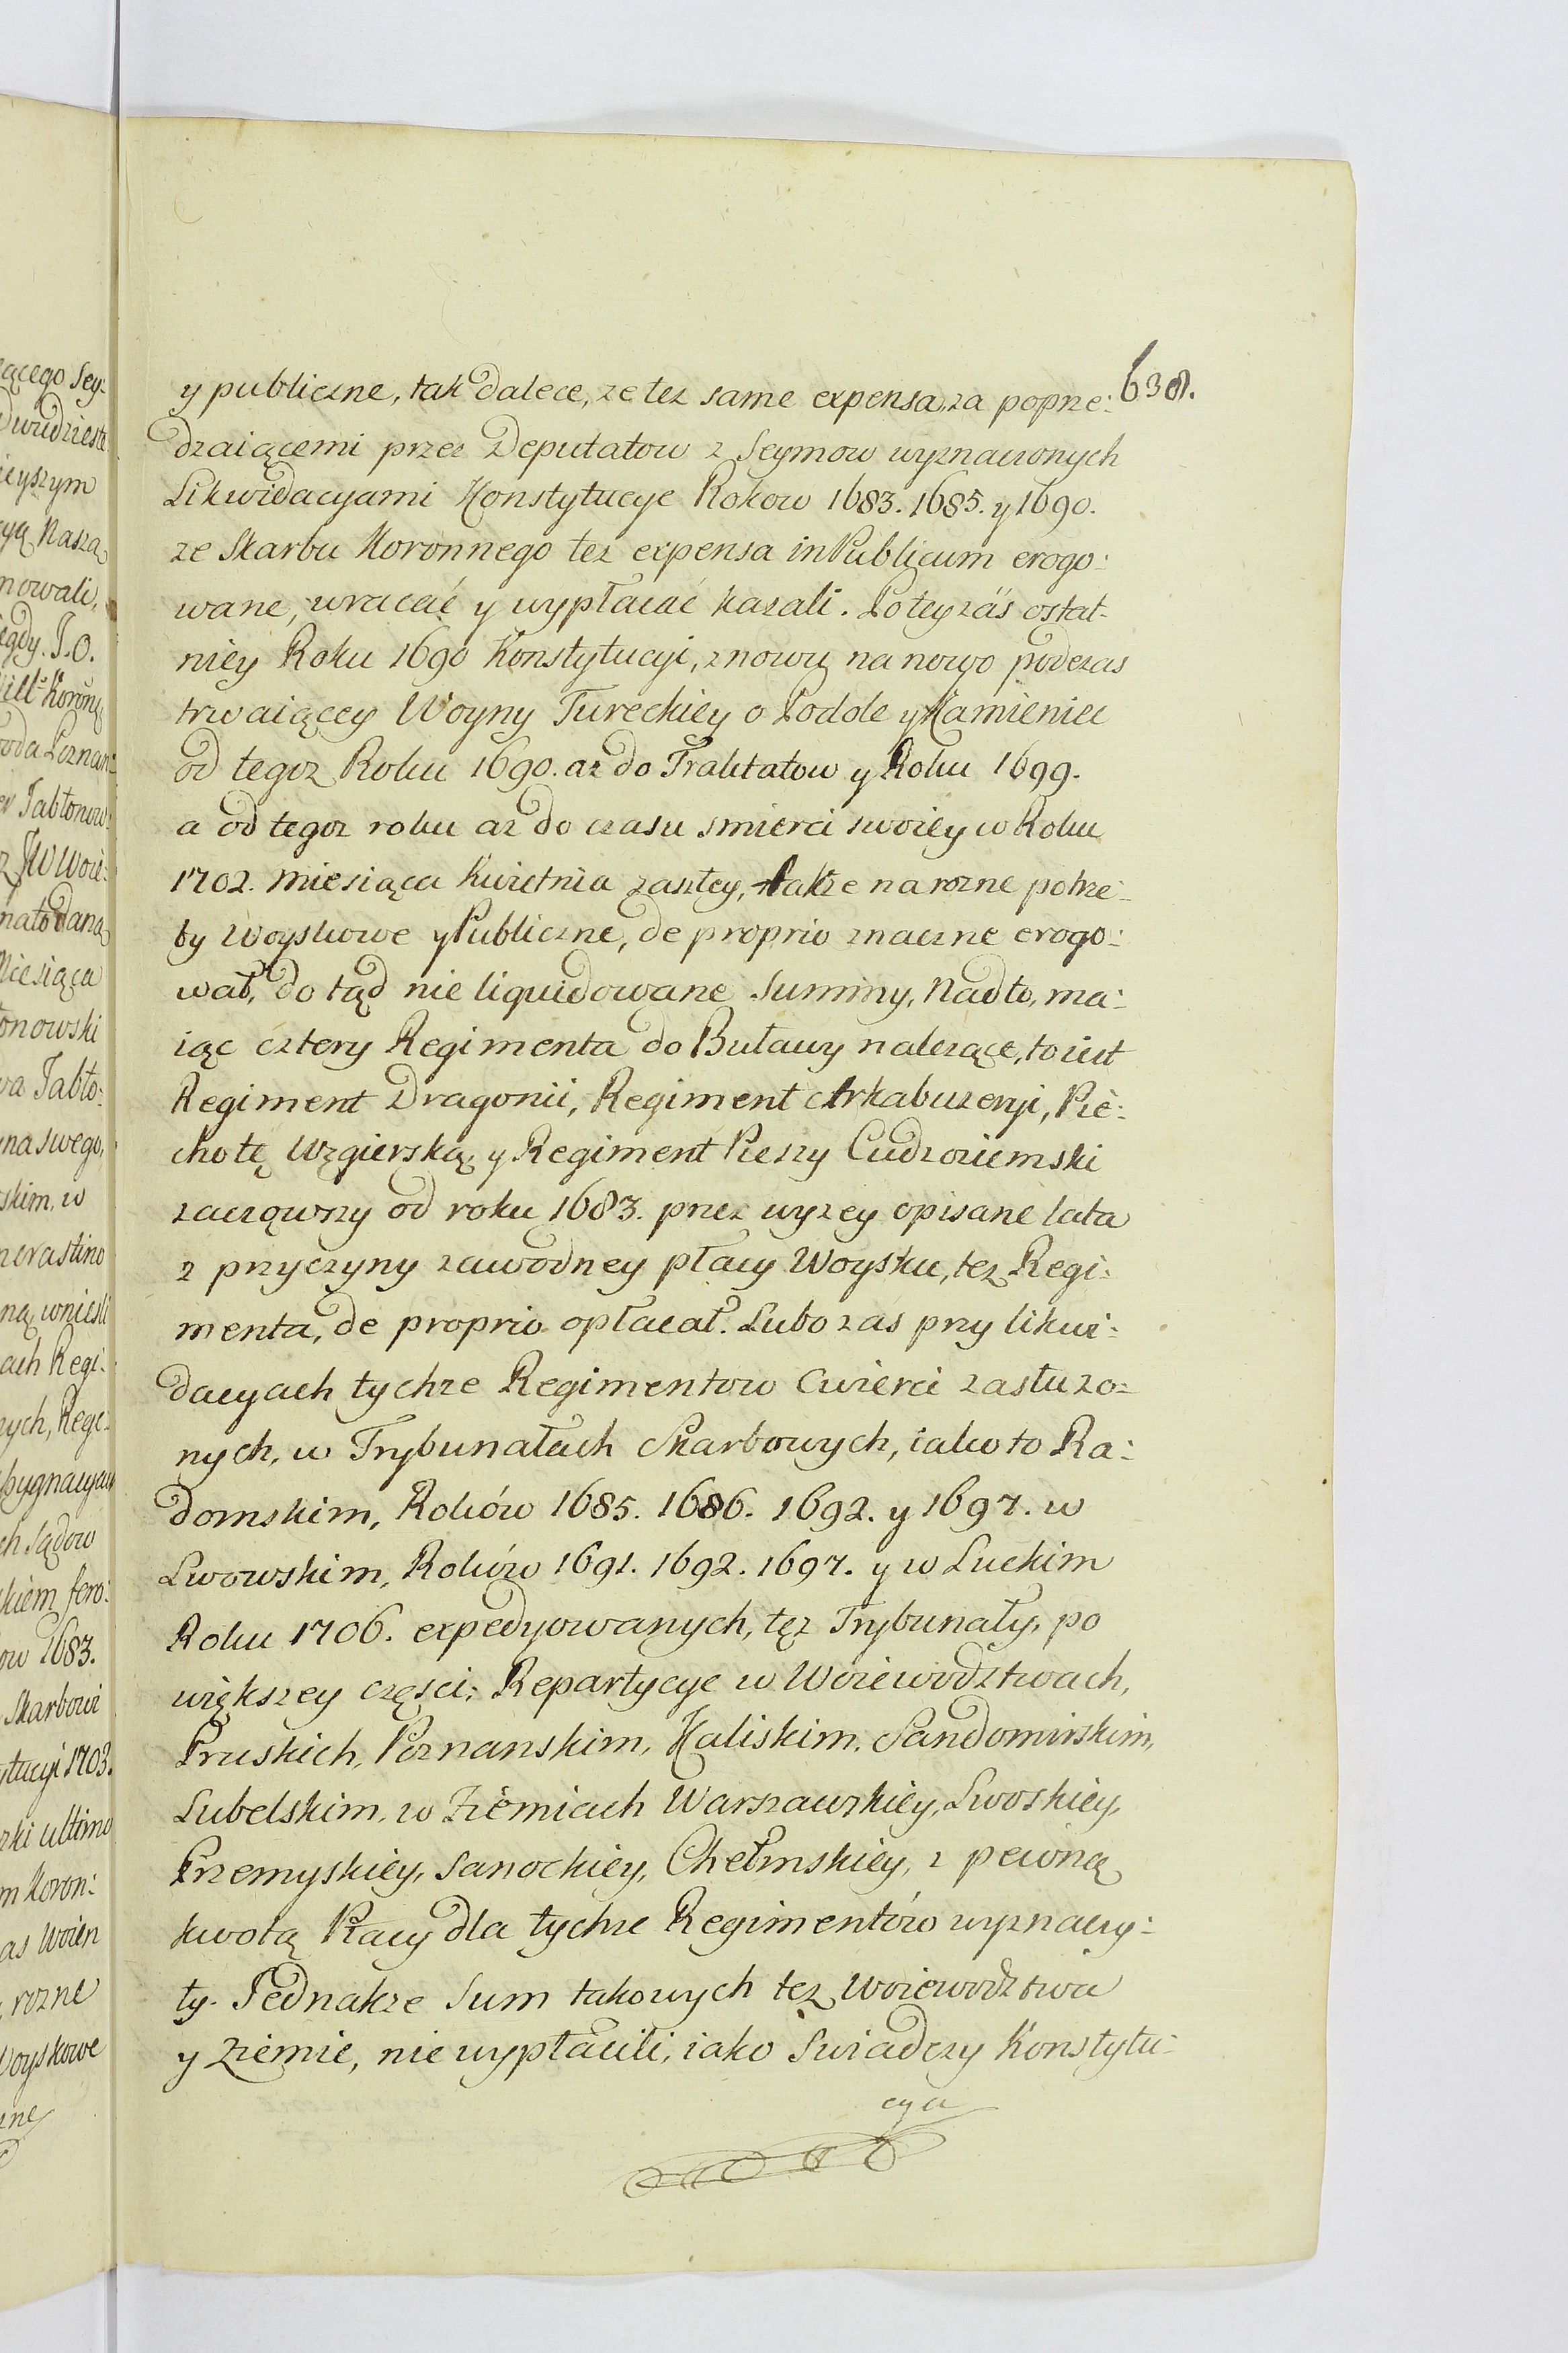 638.
y publiczne, tak dalece, ze tez same expensa, za poprze:
dzaiącemi przez Deputatow z Seymow wyznaczonych
Likwidacyami Konstytucye Rokow 1683. 1685. y 1690.
ze Skarbu Koronnego tez expensa in Publicum erogo:
wane, wracać y wypłacać kazali. Po tey záś ostat-
niey Roku 1690 Konstytucyi, znowu na nowo podczas
trwaiącey Woyny Tureckiey o Podole y Kamieniec
od tegoz Roku 1690. az do Traktatow y Roku 1699.
a od tegoz roku az do czasu smierci swoiey w Roku
1702. Miesiąca Kwietnia zaszłey, także na rozne potrze-
by Woyskowe y Publiczne, de proprio znaczne erogo:
wał, do tąd nie liquidowane Summy, Nadto, ma:
iąc cztery Regimenta do Buławy nalezące, to iest
Regiment Dragonii, Regiment Arkabuzeryi, Pie:
chotę Węgierską, y Regiment Pieszy Cudzoziemski
zacząwszy od roku 1683. przez wyzey opisane lata
z przyczyny zawodney płacy Woysku, tez Regi:
menta, de proprio opłacał. Lubo zas przy likwi:
dacyach tychze Regimentow Cwierci zasłuzo:
nych, w Trybunałach Skarbowych, iako to Ra:
domskim, Roków 1685. 1686. 1692. y 1697. w
Lwowskim, Roków 1691. 1692. 1697. y w Luckim
Roku 1706. expedyowanych, tęz Trybunały, po
większey częsci, Repartycye w Woiewodztwach,
Pruskich, Poznanskim, Kaliskim, Sandomirskim,
Lubelskim, w Ziemiach Warszawskiey, Lwoskiey,
Przemyskiey, Sanockiey, Chełmskiey, z pewną
kwotą Płacy dla tychze Regimentów wyznaczy:
ły. Jednakze Sum takowych tez Woiewodztwa
y Ziemie, nie wypłaciłi, iako Swiadczy Konstytu-
cya